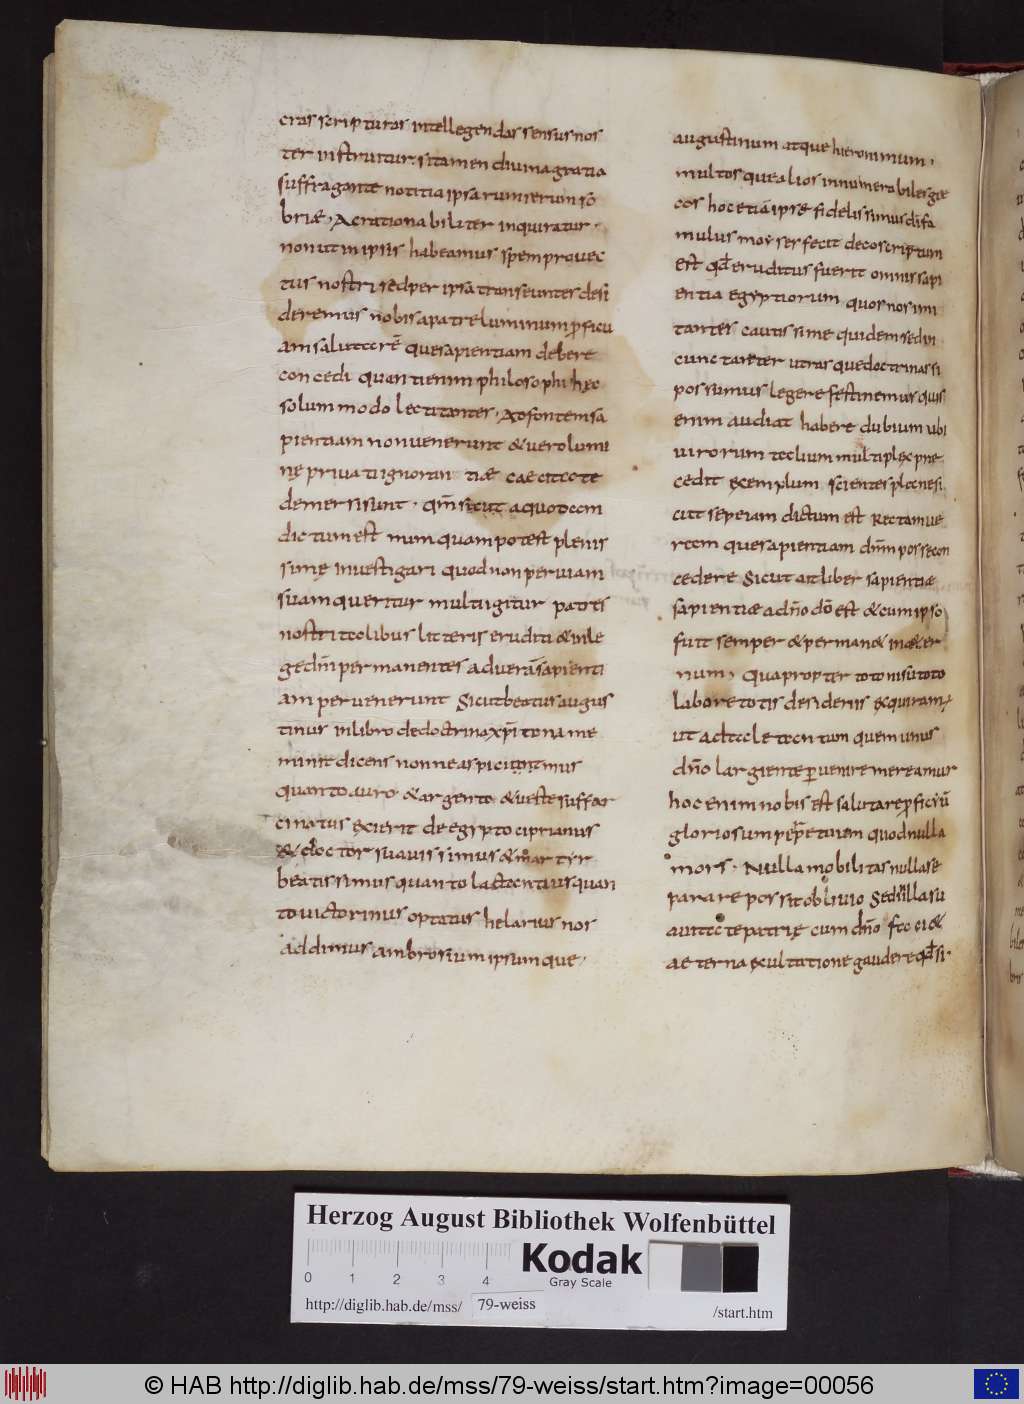 cras scripturas intellegendas sensus nos
ter instruitur. sitamen diuina gratia
suffragante notitia ipsarum rerum so
briae, Ac rationabiliter inquiratur.
non ut in ipsis habeamus spem prouec
tus nostri sed per ipsa transeuntes desi
deremus nobis a patre luminum p̄ficu
am salutarē que sapientiam debere
concedi quantienim philosophi hęc
solummodo lectitantes, Ad fontem sa
pientiam non uenerunt & uero lumi
nę priuati ignoran tiae caecitate
demersi sunt. Qm̄ sicut a quodam
dictum est numquam potest plenis
simę inuestigari quod non per uiam
suam queritur multi igitur patres
nostri talibus litteris eruditi & in le
ge dn̄i permanentes ad uerā sapienti
am peruenerunt Sicut beatus augus
tinus in libro de doctrina xp̄itoname
minit dicens nonne aspicitntmus
quanto auro & argento & ueste suffar
cinatus exierit de egypto ciprianus
& doctor suauissimus & martyr
beatissimus quanto lactantius quan
to uictorinus optatus helarius nos
Addimus ambrosium ipsumque,
augustinum atque hieronimum,
multosque alios innumerabiles gre
cos hoc etiā ipse fidelissimus dī fa
mulus moyses fecit de co scriptum
est qđ eruditus fuerit omni sapi
entia egyptiorum quos nos imi
tantes cautissime quidem sed in
cunctanter utrasque doctrinas si
possumus legere festinemus quis
enim audiat habere dubium ubi
uirorum talium multiplęc prę
cedit exemplum scientes plane si
cut sepe iam dictum est Rectam ue
ram que sapientiam dn̄m posse con
cedere Sicut ait liber sapientiae
sapientiae a dn̄o dō est & cum ipso
fuit semper & permanet in aeter
num, Quapropter toto nisu toto
labore totis desideriis exquiram;
ut ad tale tantum quem unus
dn̄o largiente peruenire mereamur
hoc enim nobis est salutare p̄ficuū
gloriosum perpetuum quod nulla
mors. Nulla mobilitas nulla se
parare possit obliuio Sed in illa su
auitate patrię cum dn̄o fac ei &
aeterna exultatione gaudere qđ si.
Herzog August Bibliothek Wolfenbüttel
0 1 2 3 4
Kodak
Gray Scale
http://diglib.hab.de/mss/ 79-weiss /start.htm
© HAB http://diglib.hab.de/mss/79-weiss/start.htm?image=00056